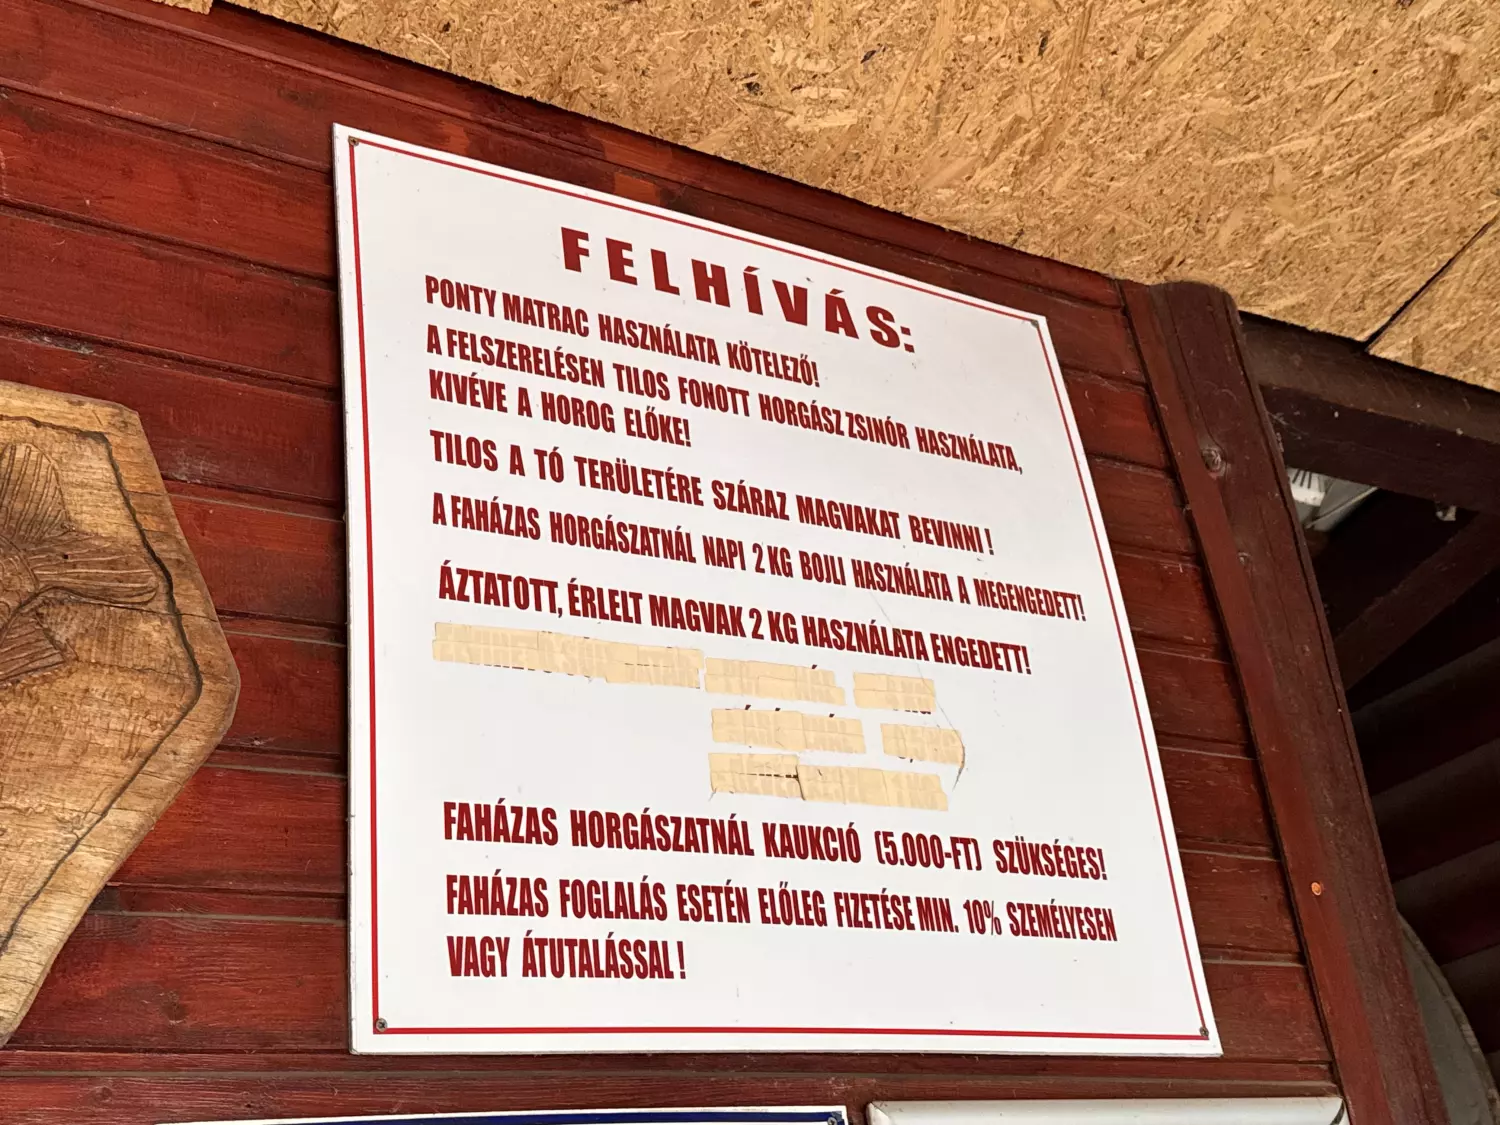 FELHÍVÁS:
PONTY MATRAC HASZNÁLATA KÖTELEZŐ!
A FELSZERELÉSEN TILOS FONOTT HORGÁSZ ZSINÓR HASZNÁLATA,
KIVÉVE A HOROG ELŐKE!
TILOS A TÓ TERÜLETÉRE SZÁRAZ MAGVAKAT BEVINNI!
A FAHÁZAS HORGÁSZATNÁL NAPI 2 KG BOJLI HASZNÁLATA A MEGENGEDETT!
ÁZTATOTT, ÉRLELT MAGVAK 2 KG HASZNÁLATA ENGEDETT!
FAHÁZAS HORGÁSZATNÁL KAUKCIÓ (5.000-FT) SZÜKSÉGES!
FAHÁZAS FOGLALÁS ESETÉN ELŐLEG FIZETÉSE MIN. 10% SZEMÉLYESEN
VAGY ÁTUTALÁSSAL!